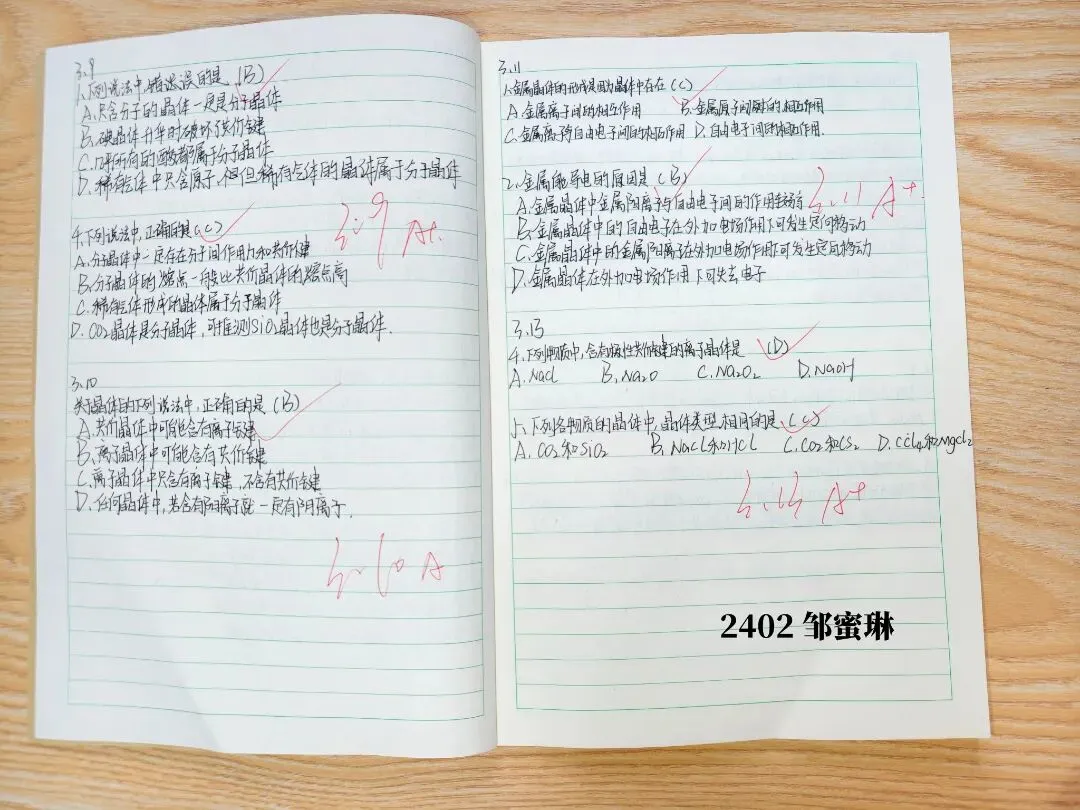 3.9
1.下列说法中,错误的是 (B)
A.只含分子的晶体一定是分子晶体
B.碘晶体升华时破坏了共价键
C.几乎所有的酸都属于分子晶体
D.稀有气体中只含原子,但稀有气体的晶体属于分子晶体
3.9 A+
4.下列说法中,正确的是(C)
A.分子晶体中一定存在分子间作用力和共价键
B.分子晶体的熔点一般比共价晶体的熔点高
C.稀有气体形成的晶体属于分子晶体
D.CO2晶体是分子晶体,可推测SiO2晶体也是分子晶体.
3.10
关于晶体的下列说法中,正确的是(B)
A.共价晶体中可能含有离子键
B.离子晶体中可能含有共价键
C.离子晶体中只含有离子键,不含有共价键
D.任何晶体中,若含有阳离子就一定有阴离子.
3.10 A
3.11
1.金属晶体的形成是因为晶体中存在(C)
A.金属离子间的相互作用 B.金属原子间的相互作用
C.金属离子与自由电子间的相互作用 D.自由电子间的相互作用.
2.金属能导电的原因是(B)
A.金属晶体中金属阳离子与自由电子间的作用较弱
B.金属晶体中的自由电子在外加电场作用下可发生定向移动
C.金属晶体中的金属阳离子在外加电场作用下可发生定向移动
D.金属晶体在外加电场作用下可失去电子
3.11 A+
3.13
4.下列物质中,含有极性共价键的离子晶体是 (D)
A.NaCl B.Na2O C.Na2O2 D.NaOH
5.下列各物质的晶体中,晶体类型相同的是(C)
A.CO2和SiO2 B.NaCl和HCl C.CO2和CS2 D.CCl4和MgCl2
3.13 A+
2402 邹蜜琳